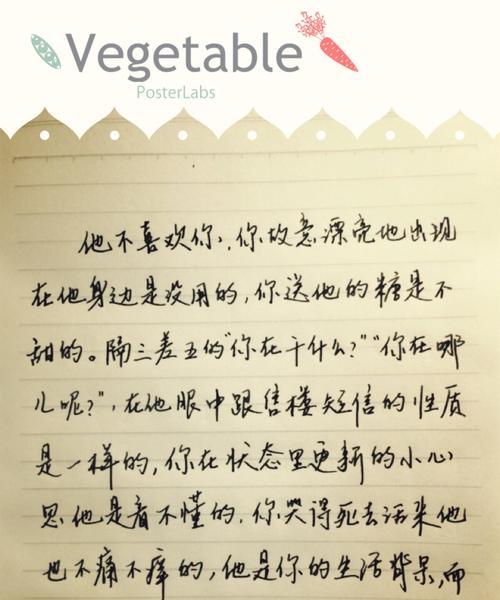 Vegetable
PosterLabs
他不喜欢你,你故意漂亮地出现
在他身边是没用的,你送他的糖是不
甜的。隔三差五的“你在干什么?”“你在哪
儿呢?”,在他眼中跟售楼短信的性质
是一样的,你在状态里更新的小心
思他是看不懂的,你哭得死去活来他
也不痛不痒的,他是你的生活背景,而